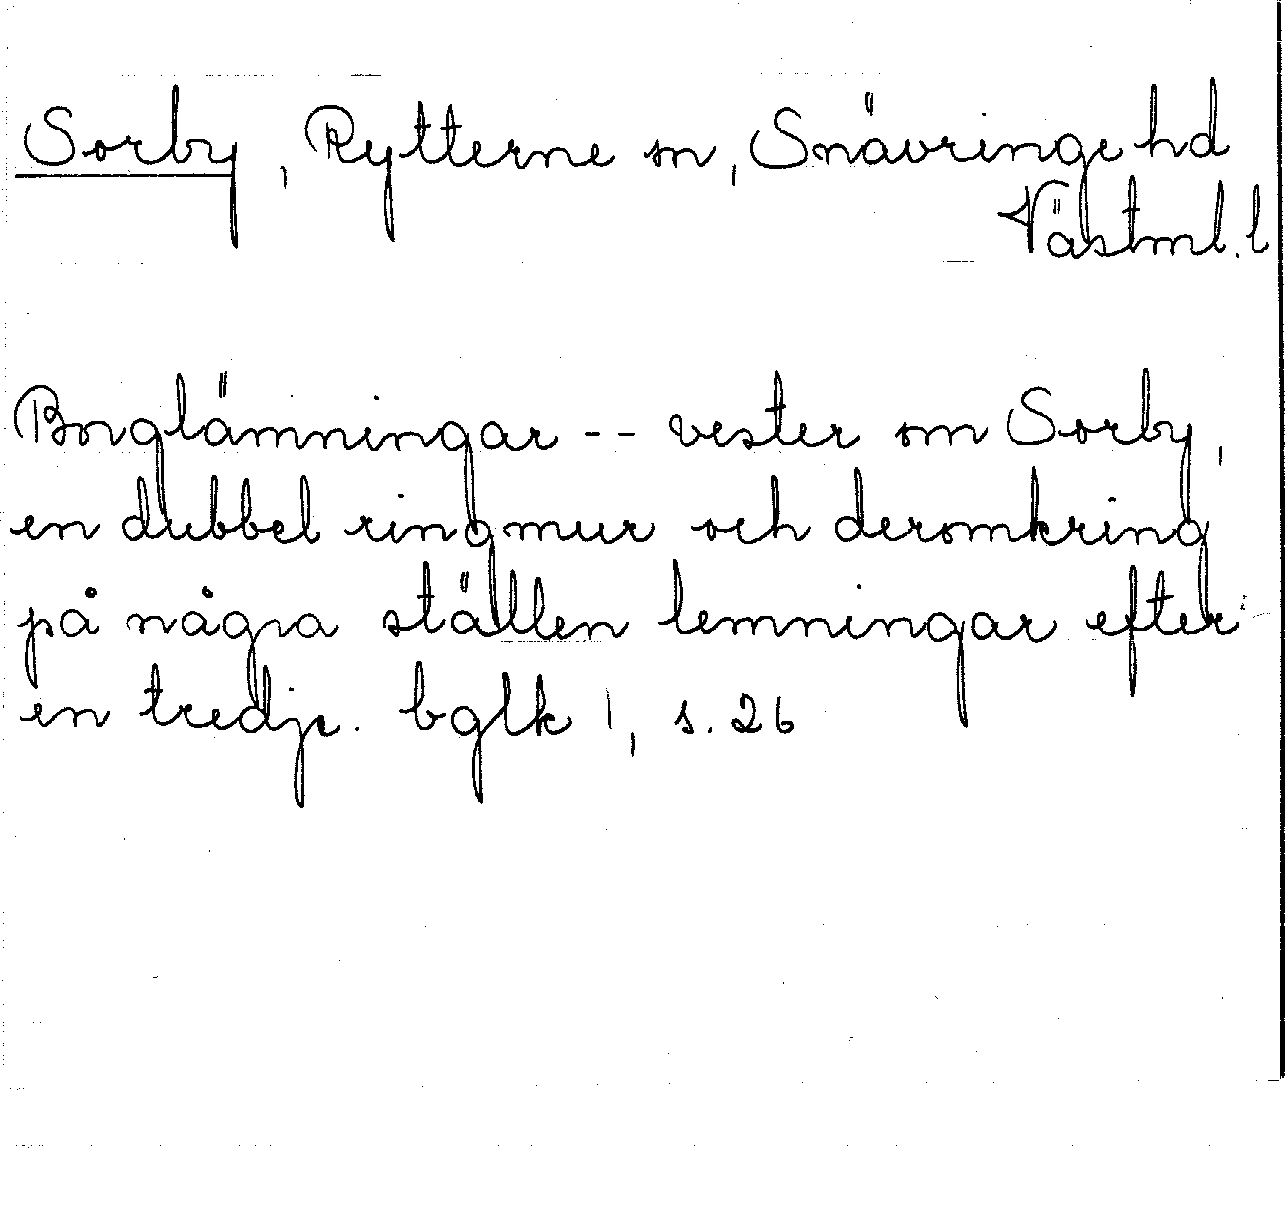 Sorby, Rytterne sn, Snävringe hd
Västml. l
Borglämningar -- vester om Sorby,
en dubbel ringmur och deromkring
på några ställen lemningar efter
en tredje. bglk 1, s. 26